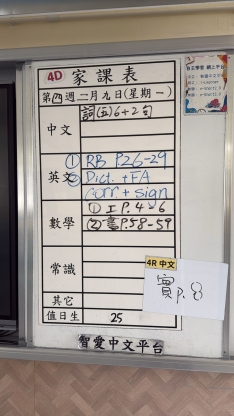 4D 家課表
第四週二月九日(星期一)
中文
詞(五)6+2句
英文
① RB P.26-29
② Dict. + FA
corr + sign
數學
① 工P.4,6
② 書P.58-59
常識
4R 中文
寶p.8
其它
值日生 25
智愛中文平台